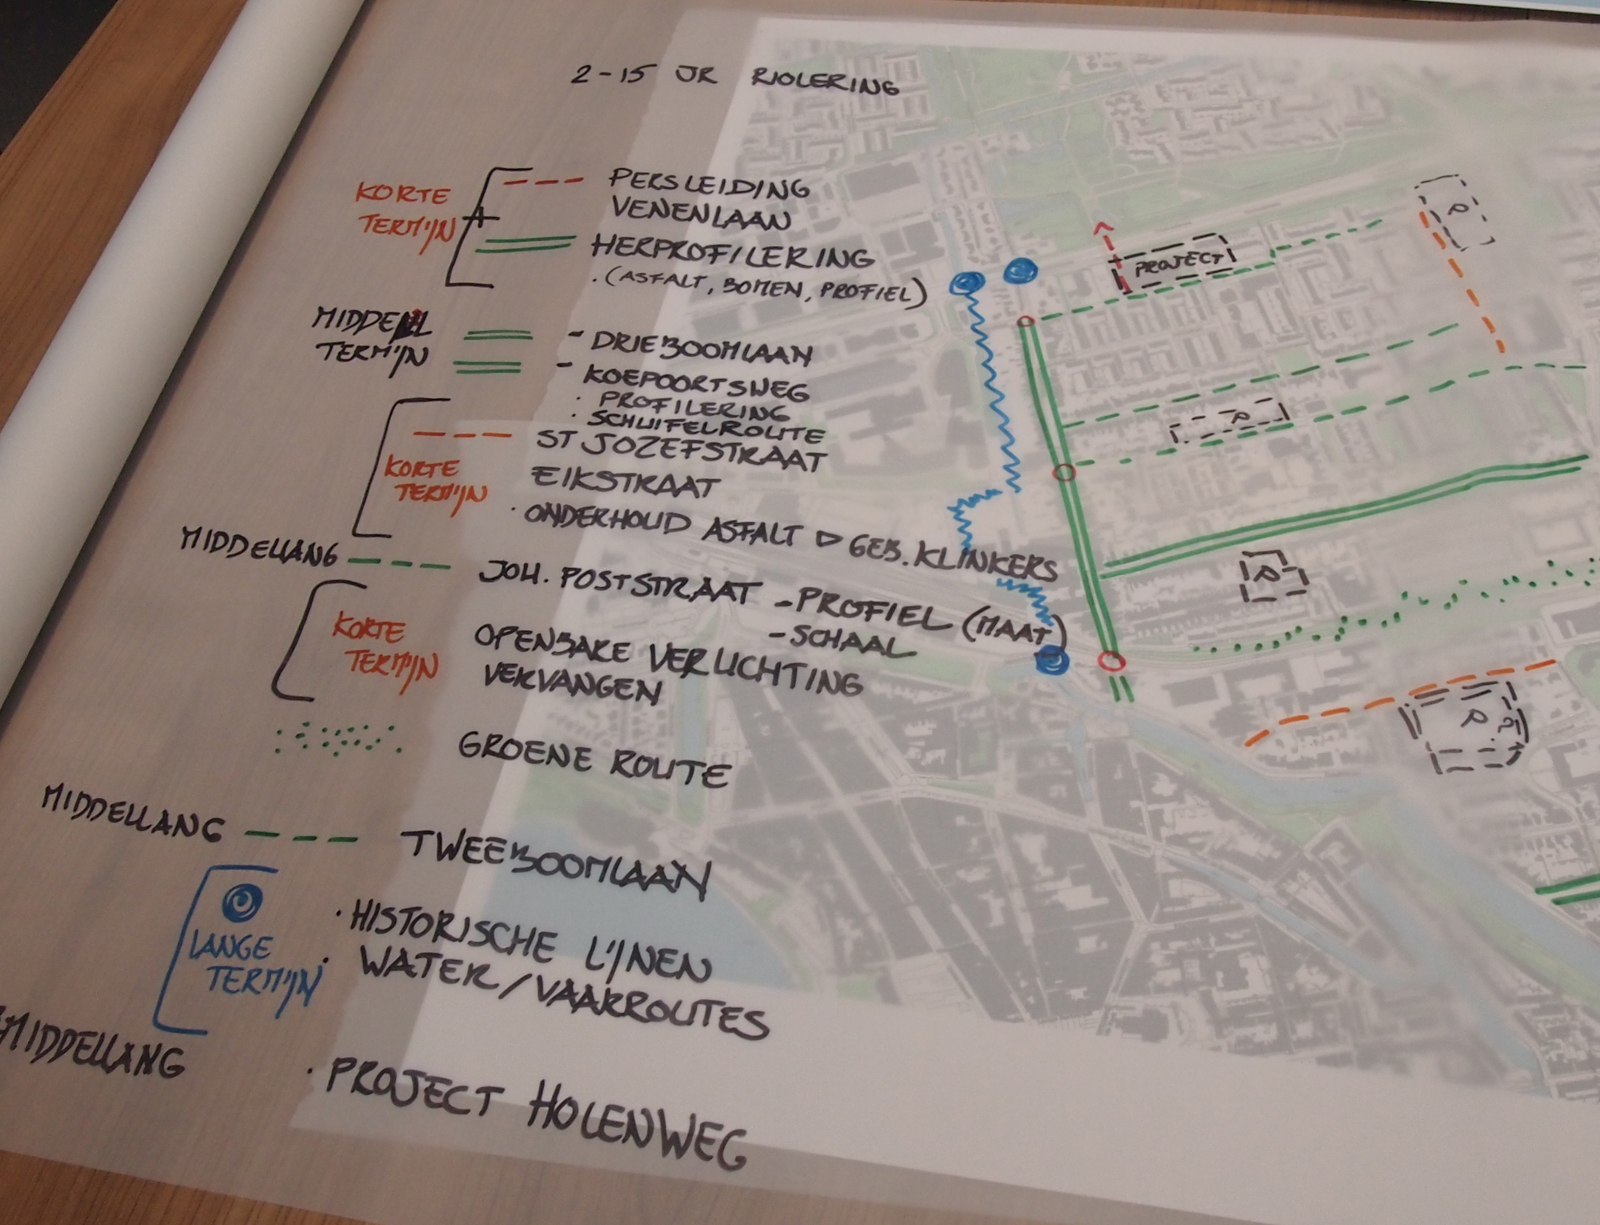 2-15 JR RIOLERING
KORTE
TERMIJN
PERSLEIDING
VENENLAAN
HERPROFILERING
. (ASFALT, BOMEN, PROFIEL)
PROJECT
MIDDEL
TERMIJN
- DRIEBOOMLAAN
- KOEPOORTSWEG
· PROFILERING
· SCHUIFELROUTE
KORTE
TERMIJN
ST JOZEFSTRAAT
EIKSTRAAT
· ONDERHOUD ASFALT ▷ GEB. KLINKERS
MIDDELLANG
JOH. POSTSTRAAT - PROFIEL (MAAT)
- SCHAAL
KORTE
TERMIJN
OPENBARE VERLICHTING
VERVANGEN
GROENE ROUTE
MIDDELLANG
TWEEBOOMLAAN
LANGE
TERMIJN
· HISTORISCHE LIJNEN
· WATER/VAARROUTES
MIDDELLANG
· PROJECT HOLENWEG